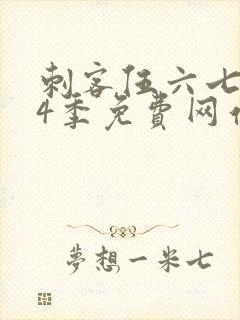 刺客伍六七
4季免費网
夢想一米七